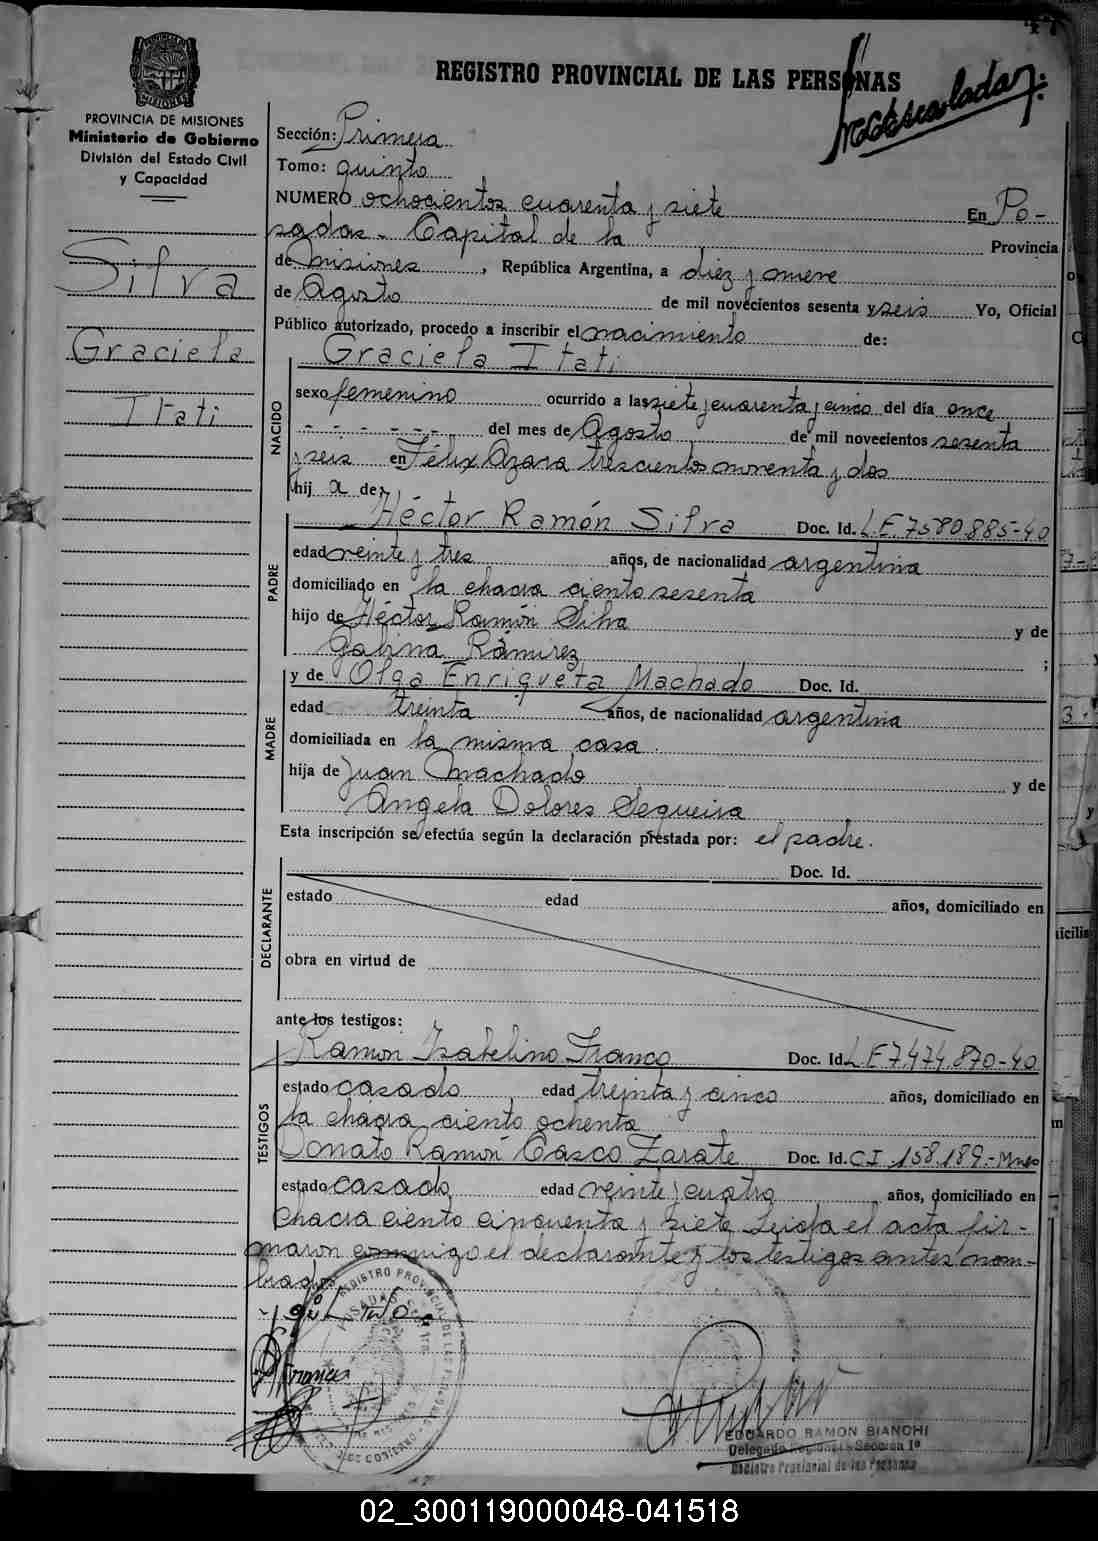 47
REGISTRO PROVINCIAL DE LAS PERSONAS
PROVINCIA DE MISIONES
Ministerio de Gobierno
División del Estado Civil
y Capacidad
Silva
Graciela
Itati
Sección: Primera
Tomo: quinto
NUMERO ochocientos cuarenta y siete En Po-
sadas - Capital de la Provincia
de Misiones, República Argentina, a diez y nueve
de Agosto de mil novecientos sesenta y seis Yo, Oficial
Público autorizado, procedo a inscribir el nacimiento de:
Graciela Itati
NACIDO
sexo femenino ocurrido a las siete y cuarenta y cinco del día once
- - - - - - - del mes de Agosto de mil novecientos sesenta
y seis en Félix Azara trescientos noventa y dos
hij a de
PADRE
Héctor Ramón Silva Doc. Id. L.E. 7580.885-40
edad veinte y tres años, de nacionalidad argentina
domiciliado en la chacra ciento sesenta
hijo de Héctor Ramón Silva y de
Gabina Ramirez ;
MADRE
y de Olga Enriqueta Machado Doc. Id.
edad treinta años, de nacionalidad argentina
domiciliada en la misma casa
hija de Juan Machado y de
Angela Dolores Sequeira
Esta inscripción se efectúa según la declaración prestada por: el padre.
DECLARANTE
Doc. Id.
estado edad años, domiciliado en
obra en virtud de
ante los testigos:
TESTIGOS
Ramón Isabelino Franco Doc. Id. L.E 7.474.870-40
estado casado edad treinta y cinco años, domiciliado en
la chacra ciento ochenta
Donato Ramón Casco Zarate Doc. Id. C.I. 158.189.-Mnes
estado casado edad veinte y cuatro años, domiciliado en
chacra ciento cincuenta y siete Leida el acta fir-
maron conmigo el declarante y los testigos antes nom-
brados
EDUARDO RAMON BIANCHI
Delegado Regional - Sección 1º
Registro Provincial de las Personas
02_300119000048-041518